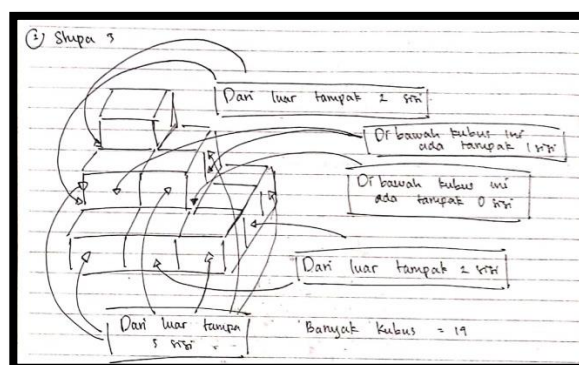 ① Stupa 3
Dari luar tampak 2 sisi
Di bawah kubus ini
ada tampak 1 sisi
Di bawah kubus ini
ada tampak 0 sisi
Dari luar tampak 2 sisi
Dari luar tampa
3 sisi
Banyak kubus = 19